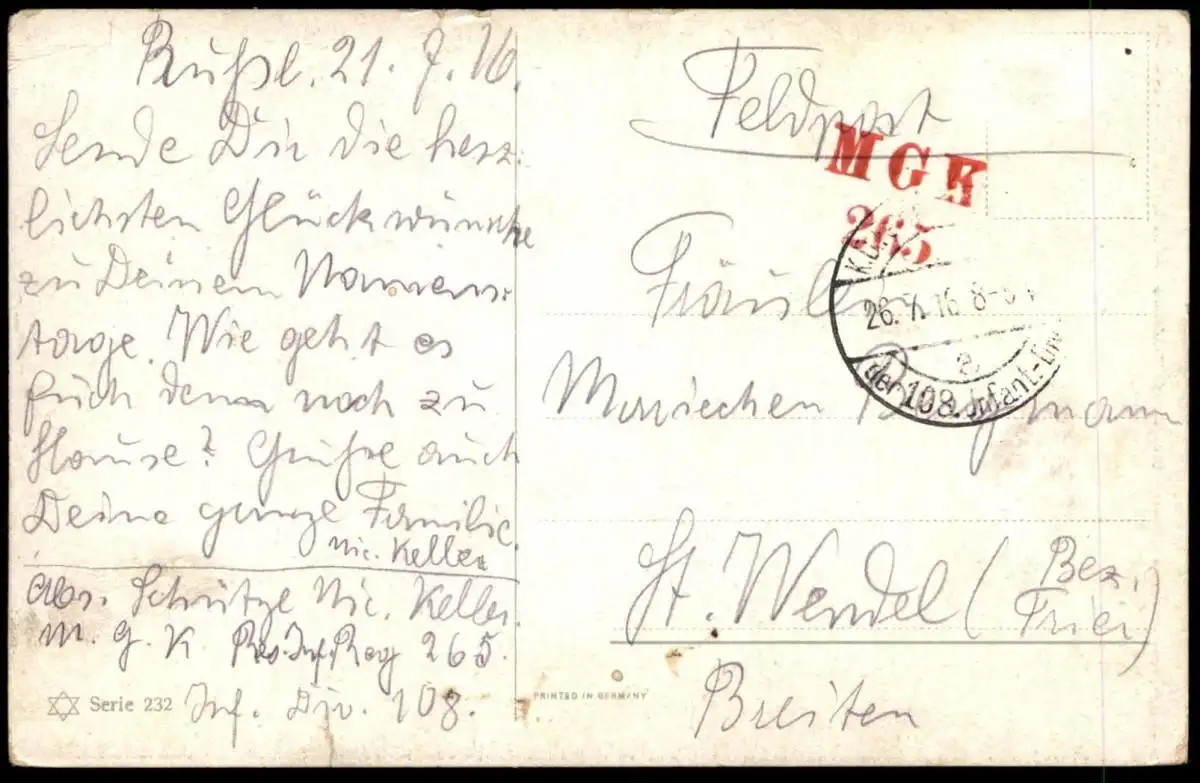 Rußl. 21. 7. 16.
Sende Dir die herz-
lichsten Glückwünsche
zu Deinem Namens-
tage. Wie geht es
Euch denn noch zu
Hause? Grüße auch
Deine ganze Familie.
Nic. Keller
Abs. Schütze Nic. Keller.
M. G. K Res. Inf. Reg 265.
Inf. Div. 108.
Serie 232
PRINTED IN GERMANY
Feldpost
MGK
265
26.7.16 8-9
a
der 108. Infant.-Div
Fräulein
Mariechen
St. Wendel (Bez. Trier)
Breiten